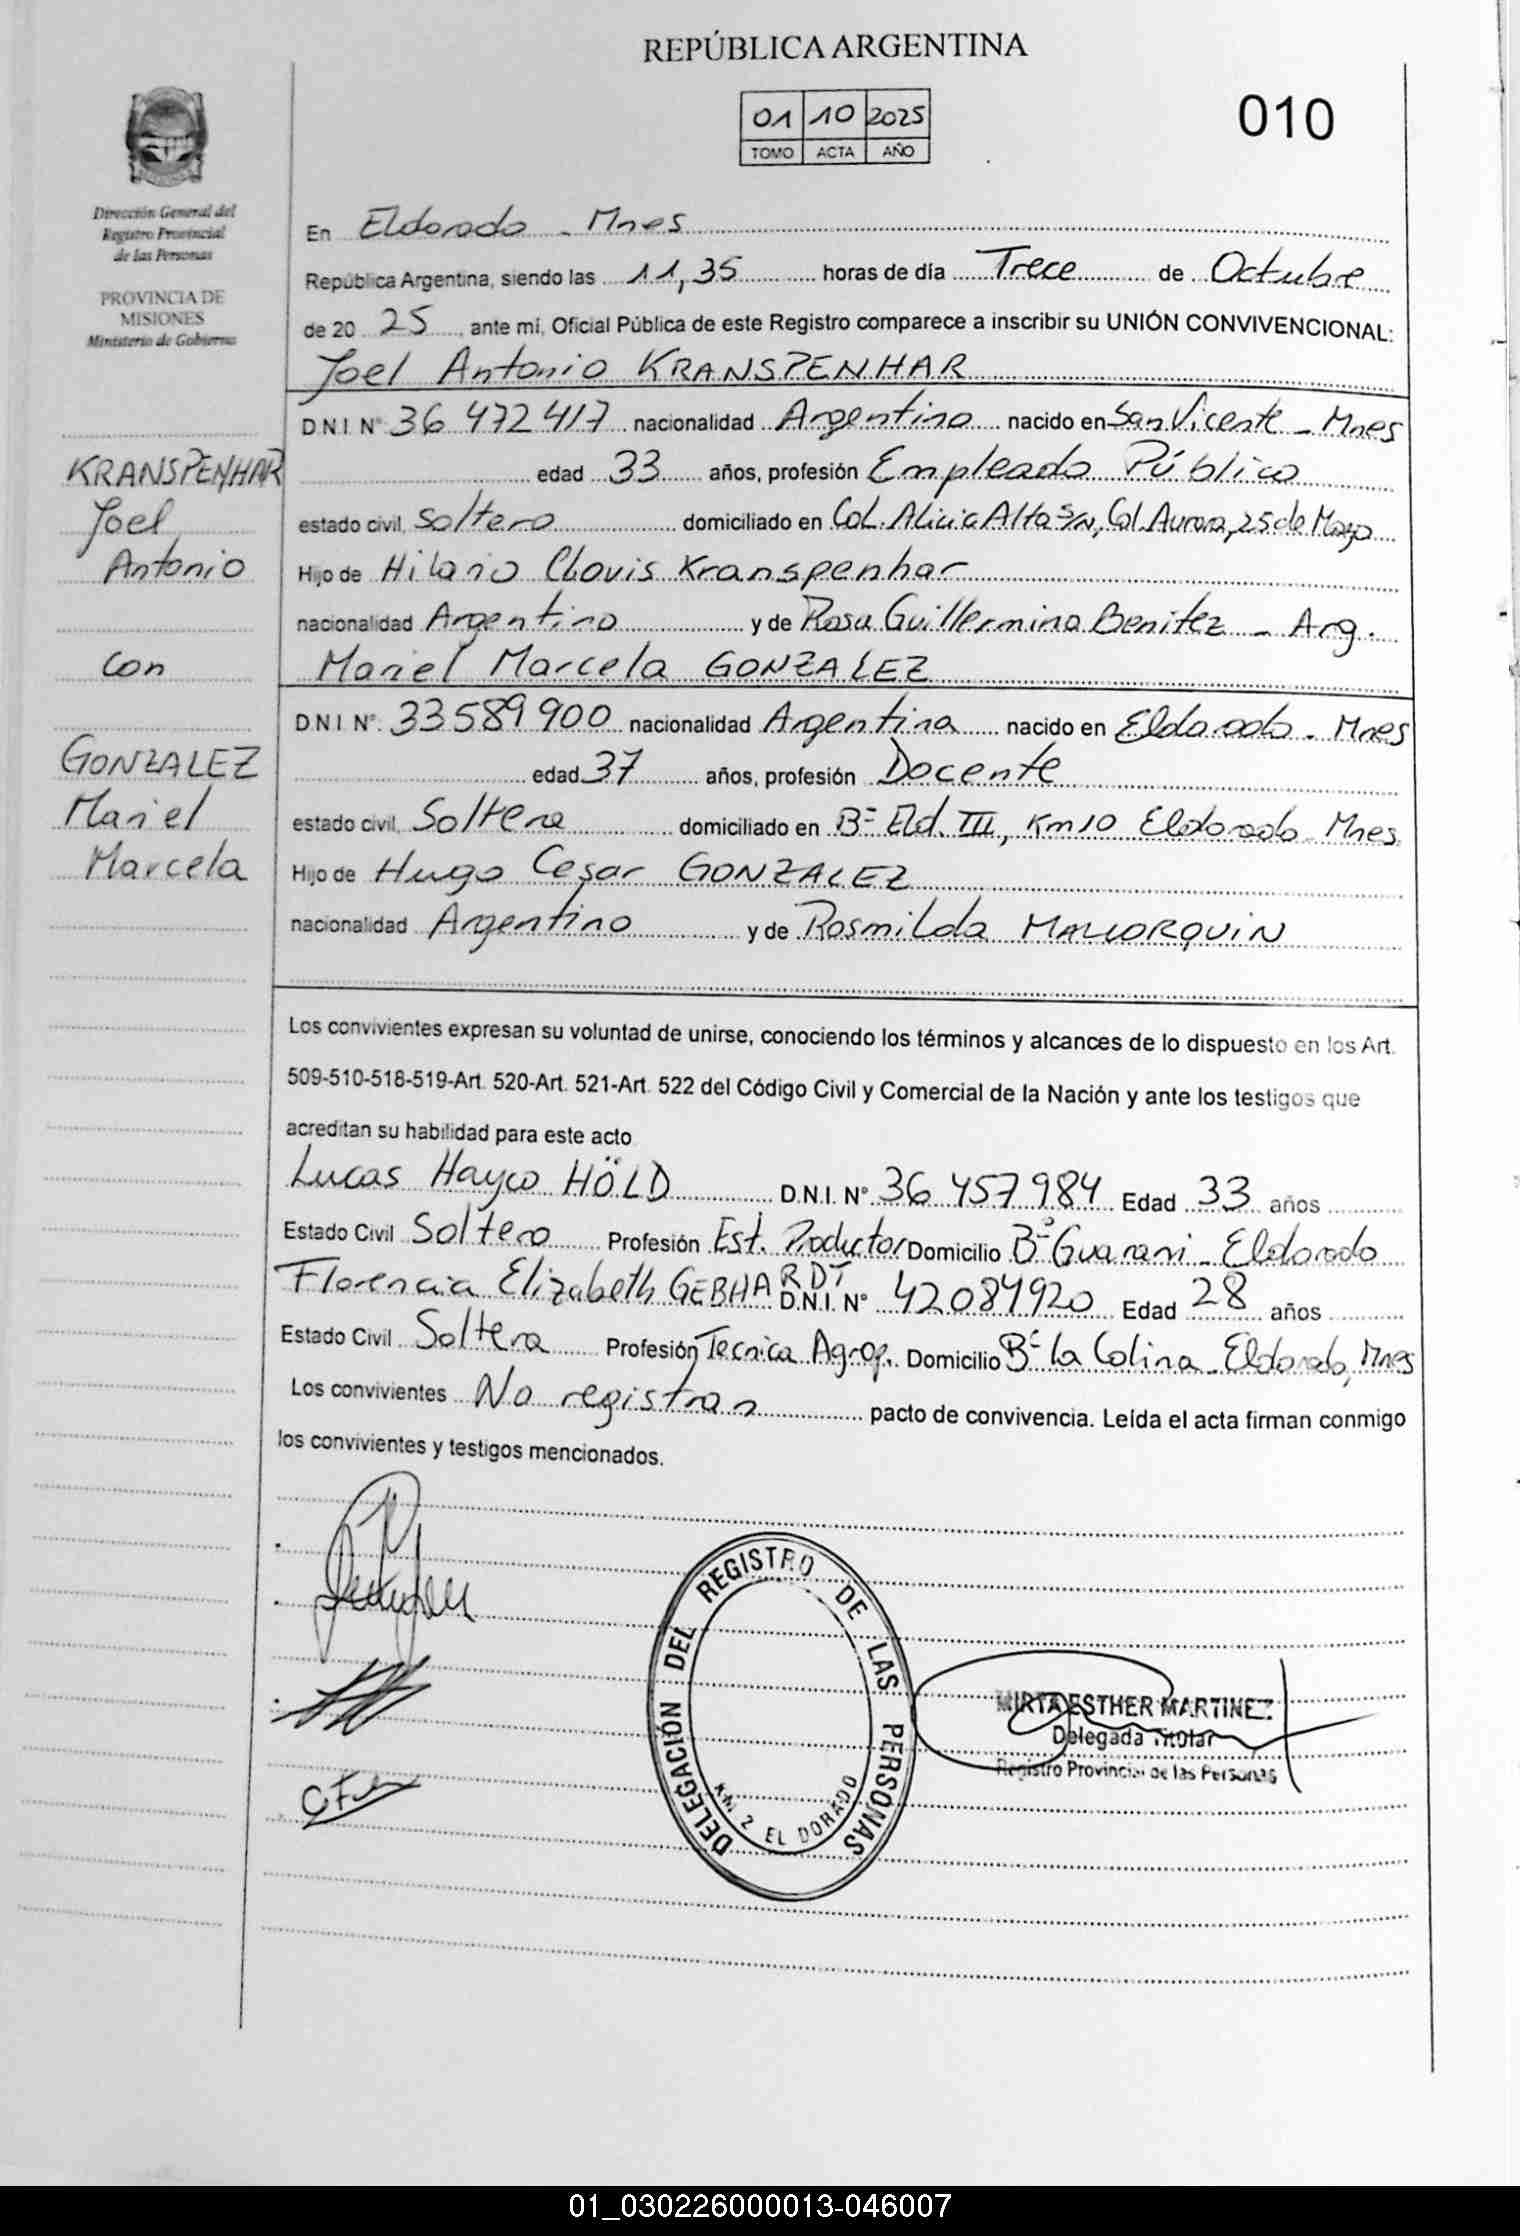 REPÚBLICA ARGENTINA
01 10 2025
TOMO ACTA AÑO
010
Dirección General del
Registro Provincial
de las Personas
PROVINCIA DE
MISIONES
Ministerio de Gobierno
En Eldorado - Mnes
República Argentina, siendo las 11,35 horas de día Trece de Octubre
de 20 25, ante mí, Oficial Pública de este Registro comparece a inscribir su UNIÓN CONVIVENCIONAL:
Joel Antonio KRANSPENHAR
D N I N° 36 472 417 nacionalidad Argentino nacido en San Vicente - Mnes
edad 33 años, profesión Empleado Público
estado civil, soltero domiciliado en Col. Alicia Alta S/N, Col. Aurora, 25 de Mayo
Hijo de Hilario Clovis Kranspenhar
nacionalidad Argentino y de Rosa Guillermina Benitez - Arg.
Mariel Marcela GONZALEZ
D N I N°. 33 589 900 nacionalidad Argentina nacido en Eldorado - Mnes
edad 37 años, profesión Docente
estado civil, Soltera domiciliado en B° Eld. III, Km 10 Eldorado - Mnes
Hijo de Hugo Cesar GONZALEZ
nacionalidad Argentino y de Rosmilda MALLORQUIN
KRANSPENHAR
Joel
Antonio
con
GONZALEZ
Mariel
Marcela
Los convivientes expresan su voluntad de unirse, conociendo los términos y alcances de lo dispuesto en los Art.
509-510-518-519-Art. 520-Art. 521-Art. 522 del Código Civil y Comercial de la Nación y ante los testigos que
acreditan su habilidad para este acto
Lucas Hayco HÖLD D.N.I. N° 36 457 984 Edad 33 años
Estado Civil Soltero Profesión Est. Productor Domicilio B° Guarani - Eldorado
Florencia Elizabeth GEBHARDT D.N.I. N° 42084920 Edad 28 años
Estado Civil Soltera Profesión Tecnica Agrop. Domicilio B° La Colina - Eldorado, Mnes
Los convivientes No registran pacto de convivencia. Leída el acta firman conmigo
los convivientes y testigos mencionados.
DELEGACIÓN DEL REGISTRO DE LAS PERSONAS
KM 2 EL DORADO
MIRTA ESTHER MARTINEZ
Delegada Titular
Registro Provincial de las Personas
01_030226000013-046007